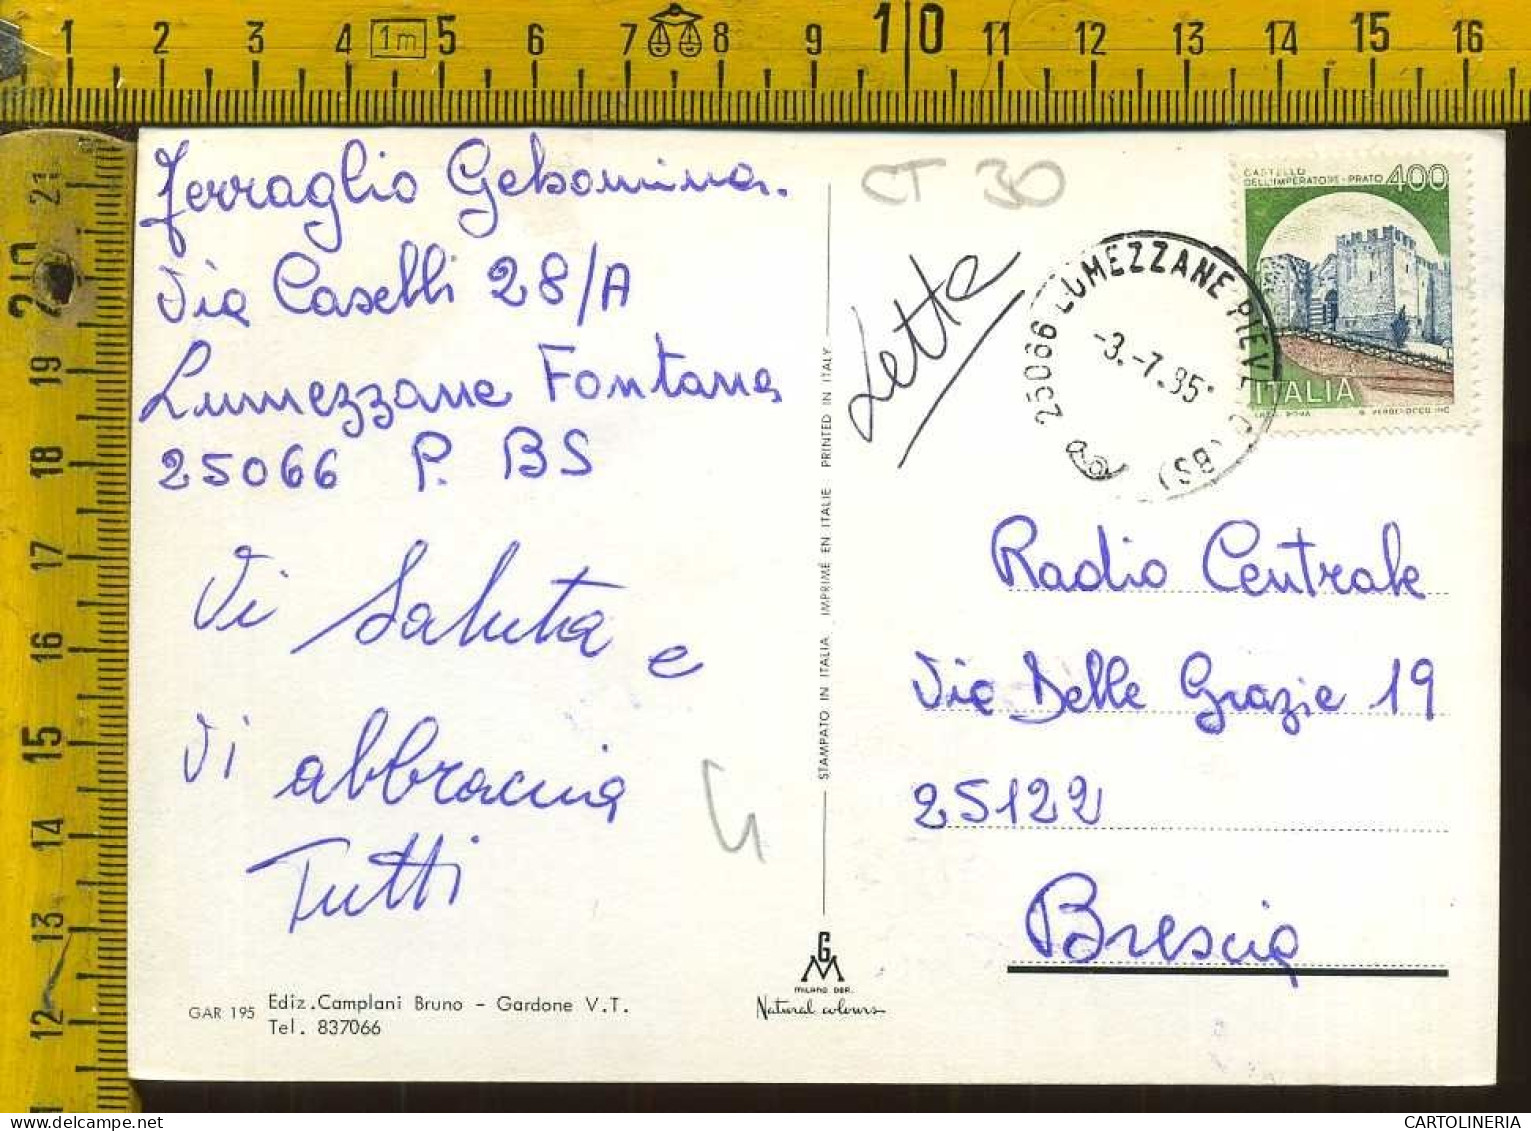 1 2 3 4 1m 5 6 7 8 9 10 11 12 13 14 15 16
21
20
19
18
17
16
15
14
13
12
Ferraglio Gebomina.
Via Caselli 28/A
Lumezzane Fontana
25066 P. BS
Vi saluta e
Vi abbraccia
Tutti
GAR 195
Ediz.Camplani Bruno - Gardone V.T.
Tel. 837066
STAMPATO IN ITALIA IMPRIMÉ EN ITALIE PRINTED IN ITALY
GM
MILANO DEP.
Natural colours
CT 30
Letta
25066 LUMEZZANE PIEVE (BS)
-3.-7.85
CASTELLO
DELL'IMPERATORE-PRATO 400
ITALIA
Radio Centrale
Via Delle Grazie 19
25122
Brescia
CARTOLINERIA